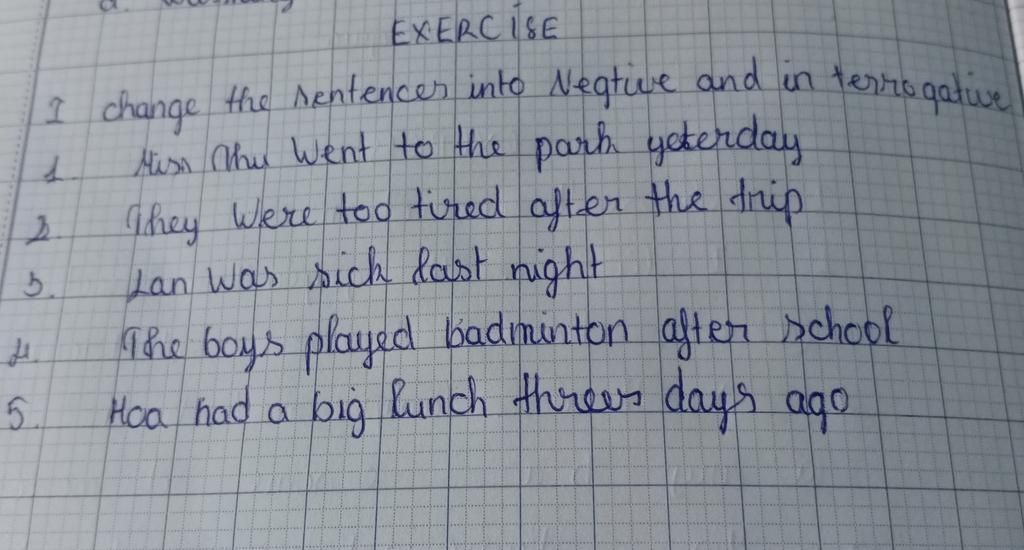 EXERCISE
I change the sentences into Negtive and in terrogative
1. Miss Thu Went to the park yeterday
2. They Were too tired after the trip
3. Lan Was sick last night
4. The boys played badminton after school
5. Hoa had a big lunch threes days ago